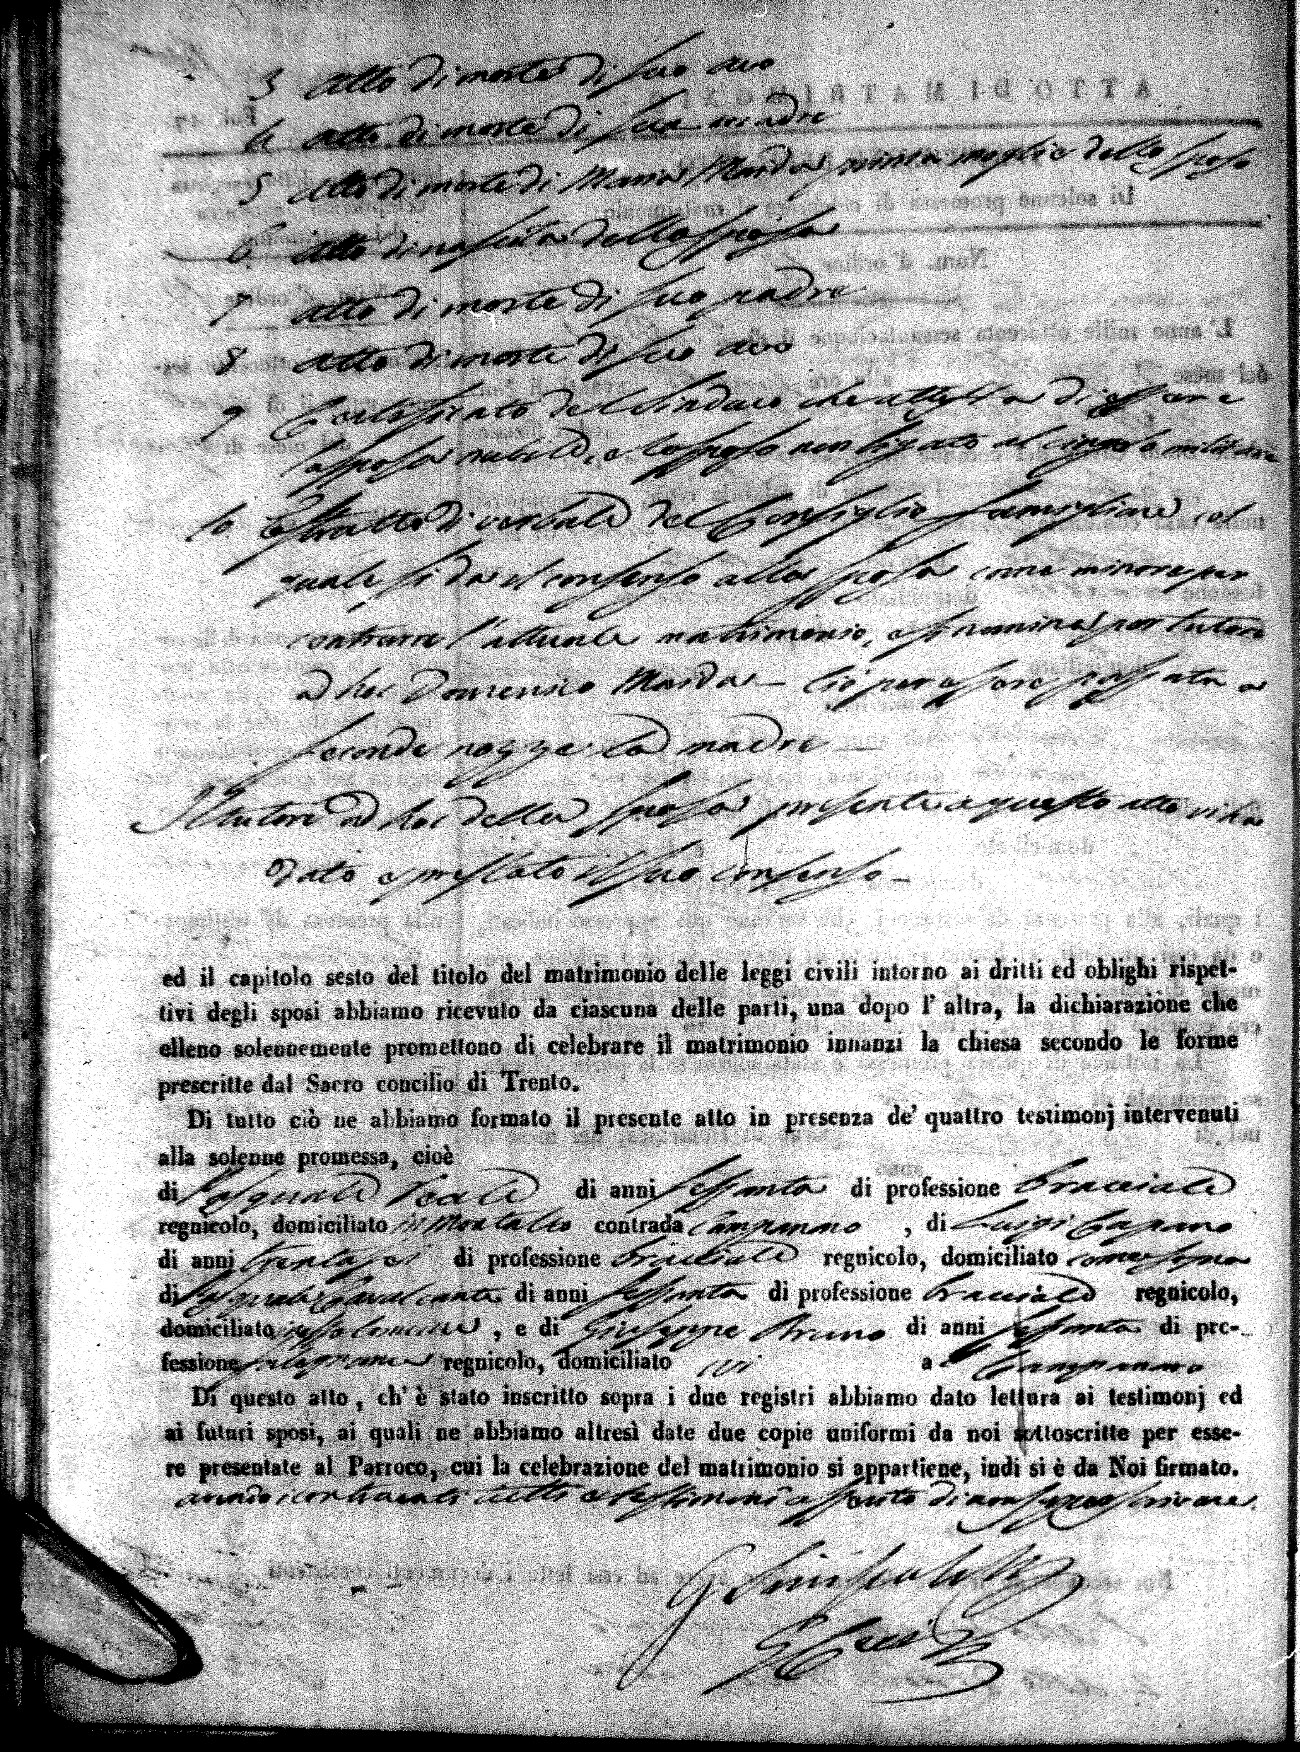 3 Atto di morte di suo avo
4 Atto di morte di sua madre
5 Atto di morte di Maria Marda prima moglie dello sposo
6 Atto di nascita della sposa
7 Atto di morte di suo padre
8 Atto di morte di suo avo
9 Certificato del Sindaco che attesta di essere
la sposa nubile, e lo sposo non ligato al cingolo militare
10 Estratto di verbale del Consiglio famigliare col
quale si da il consenso alla sposa come minore per
contrarre l'attuale matrimonio, e si nomina per tutore
ad hoc Domenico Marda – Ciò per essere passata a
seconde nozze la madre
Il tutore ad hoc della sposa presente a questo atto vi ha
dato e prestato il suo consenso –
ed il capitolo sesto del titolo del matrimonio delle leggi civili intorno ai dritti ed oblighi rispet-
tivi degli sposi abbiamo ricevuto da ciascuna delle parti, una dopo l' altra, la dichiarazione che
elleno solennemente promettono di celebrare il matrimonio innanzi la chiesa secondo le forme
prescritte dal Sacro concilio di Trento.
Di tutto ciò ne abbiamo formato il presente atto in presenza de' quattro testimonj intervenuti
alla solenne promessa, cioè
di Pasquale di anni sessanta di professione bracciale
regnicolo, domiciliato in Montalto contrada , di Luigi
di anni trenta di professione bracciale regnicolo, domiciliato come sopra
di Pasquale Cavalcante di anni sessanta di professione bracciale regnicolo,
domiciliato , e di Giuseppe Bruno di anni sessanta di pro-
fessione regnicolo, domiciliato ivi a
Di questo atto, ch' è stato inscritto sopra i due registri abbiamo dato lettura ai testimonj ed
ai futuri sposi, ai quali ne abbiamo altresì date due copie uniformi da noi sottoscritte per esse-
re presentate al Parroco, cui la celebrazione del matrimonio si appartiene, indi si è da Noi firmato.
avendo i contraenti tutti e testimoni asserito di non saper scrivere